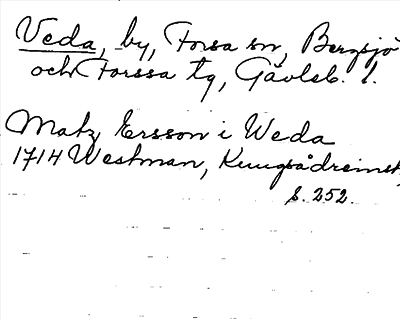 Veda, by, Forsa sn, Bergsjö
och Forssa tg, Gävleb. l.
Matz Ersson i Weda
1714 Westman, Kungsådreinst,
S. 252.